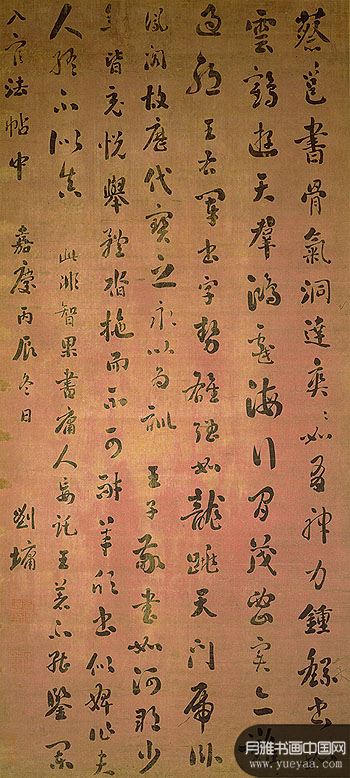 蔡邕書骨氣洞達爽〻如有神力鍾繇書
雲鶴遊天群鴻戲海行間茂密實亦難
過王右軍書字勢雄強如龍跳天門虎臥
鳳閣故歷代寶之永以為訓 王子敬書如河朔少
年皆充悅舉體沓拖而不可耐羊欣書似婢作夫
人終不似真 此非智果書庸人妄託王著不能鑒
入官法帖中 嘉慶丙辰冬日 劉墉
月雅书画中国网
www.yueyaa.com